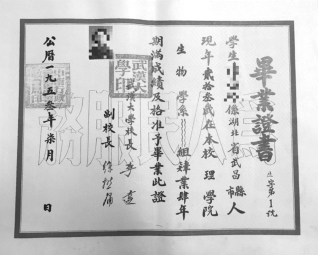 畢業證書
學生
係湖北省武昌市縣人
現年貳拾叁歲在本校理學院
生物學系
組肄業肆年
期滿成績及格准予畢業此證
武漢大學校長李達
副校長
公曆一九五叁年柒月 日
武漢大學印
為人民服務